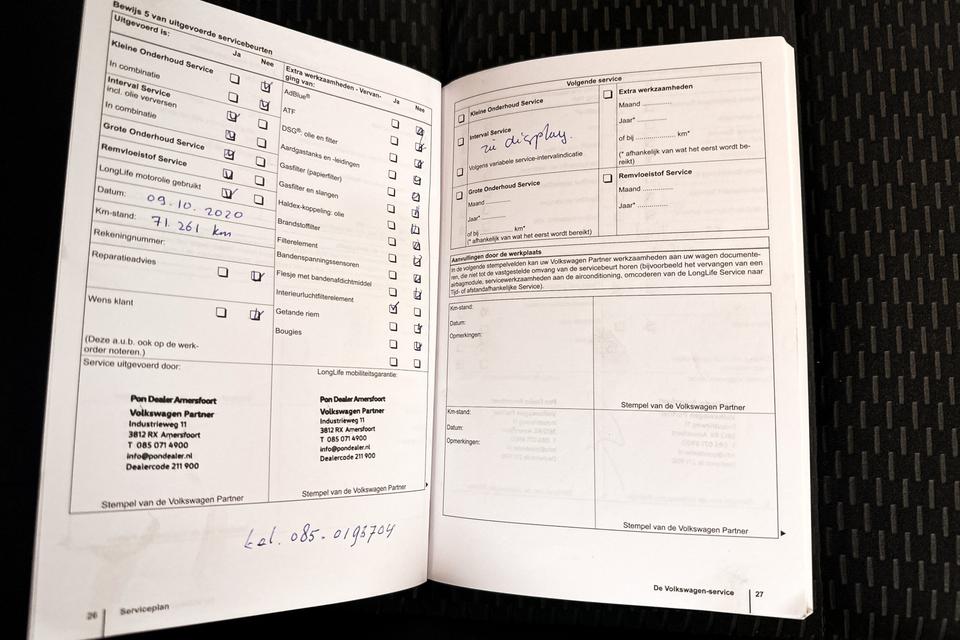 Bewijs 5 van uitgevoerde servicebeurten
Uitgevoerd is:
Ja
Nee
Kleine Onderhoud Service
In combinatie
Interval Service
incl. olie verversen
In combinatie
Grote Onderhoud Service
Remvloeistof Service
LongLife motorolie gebruikt
Datum: 09.10.2020
Km-stand: 71.261 km
Rekeningnummer:
Reparatieadvies
Wens klant
(Deze a.u.b. ook op de werk-
order noteren.)
Extra werkzaamheden - Vervan-
ging van:
Ja
Nee
AdBlue®
ATF
DSG®- olie en filter
Aardgastanks en -leidingen
Gasfilter (papierfilter)
Gasfilter en slangen
Haldex-koppeling: olie
Brandstoffilter
Filterelement
Bandenspanningssensoren
Flesje met bandenafdichtmiddel
Interieurluchtfilterelement
Getande riem
Bougies
Service uitgevoerd door:
Pon Dealer Amersfoort
Volkswagen Partner
Industrieweg 11
3812 RX Amersfoort
T 085 071 4900
info@pondealer.nl
Dealercode 211 900
Stempel van de Volkswagen Partner
LongLife mobiliteitsgarantie:
Pon Dealer Amersfoort
Volkswagen Partner
Industrieweg 11
3812 RX Amersfoort
T 085 071 4900
info@pondealer.nl
Dealercode 211 900
Stempel van de Volkswagen Partner
tel. 085-0193704
26
Serviceplan
Volgende service
Kleine Onderhoud Service
Interval Service
zie display.
Volgens variabele service-intervalindicatie
Grote Onderhoud Service
Maand ..........
Jaar* ..........
of bij .......... km*
(* afhankelijk van wat het eerst wordt bereikt)
Extra werkzaamheden
Maand ..........
Jaar* ..........
of bij .......... km*
(* afhankelijk van wat het eerst wordt be-
reikt)
Remvloeistof Service
Maand ..........
Jaar* ..........
Aanvullingen door de werkplaats
In de volgende stempelvelden kan uw Volkswagen Partner werkzaamheden aan uw wagen documente-
ren, die niet tot de vastgestelde omvang van de servicebeurt horen (bijvoorbeeld het vervangen van
airbagmodule, servicewerkzaamheden aan de airconditioning, omcoderen van de LongLife Service naar
Tijd- of afstandafhankelijke Service).
Km-stand:
Datum:
Opmerkingen:
Stempel van de Volkswagen Partner
Km-stand:
Datum:
Opmerkingen:
Stempel van de Volkswagen Partner
De Volkswagen-service
27